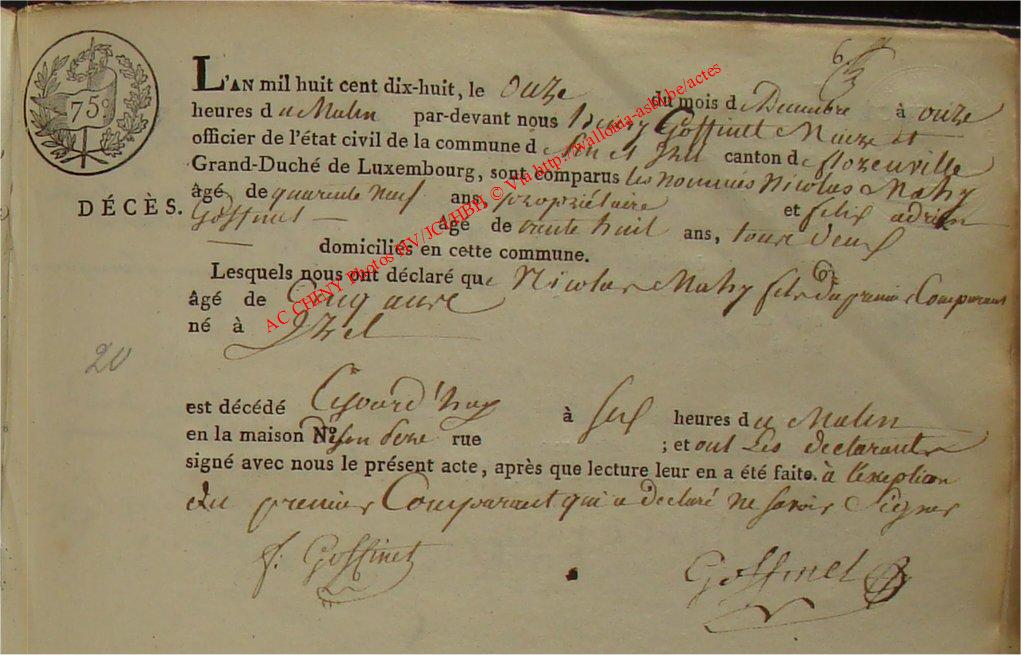 75c
DÉCÈS.
20
63
L'AN mil huit cent dix-huit, le onze du mois de Decembre à onze
heures du Matin par-devant nous henry Goffinet Maire et
officier de l'état civil de la commune d canton de florenville
Grand-Duché de Luxembourg, sont comparus les nommés Nicolas Mahy
âgé de quarente neuf ans, propriétaire et felix adrien
Goffinet — âgé de trente huit ans, tous deux
domiciliés en cette commune.
Lesquels nous ont déclaré que Nicolas Mahy fils du premier Comparant
âgé de Cinq ans
né à Izel
est décédé Cejourd'huy à heures du Matin
en la maison No. de son pere rue ; et ont Les déclarants
signé avec nous le présent acte, après que lecture leur en a été faite. à l'exeption
du premier Comparant qui a declaré ne savoir Signer
f. Goffinet Goffinet
AC CHINY Photos MV/JCJ/HBH © Via http://wallonia-asbl.be/actes